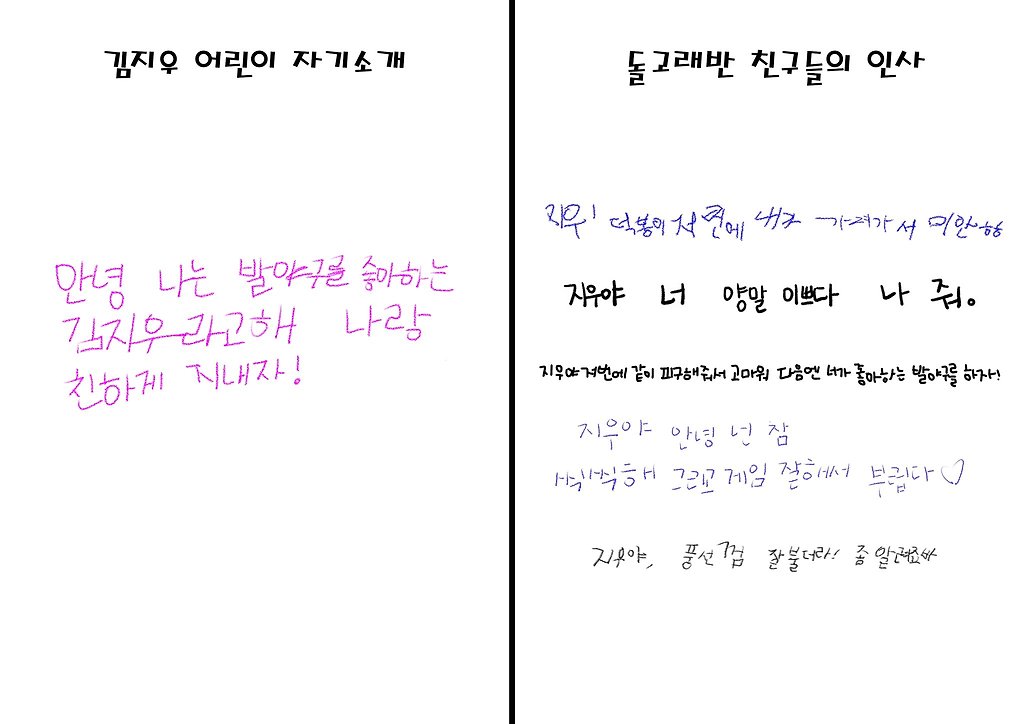 김지우 어린이 자기소개
안녕 나는 발야구를 좋아하는
김지우라고해 나랑
친하게 지내자!
돌고래반 친구들의 인사
지우! 떡볶이 저번에 내꺼 가져가서 미안행
지우야 너 양말 이쁘다 나 줘。
지우야 저번에 같이 피구해줘서 고마워 다음엔 너가 좋아하는 발야구를 하자!
지우야 안녕 넌 참
씩씩해 그리고 게임 잘해서 부럽다♡
지우야, 풍선껌 잘불더라! 좀 알려죠바